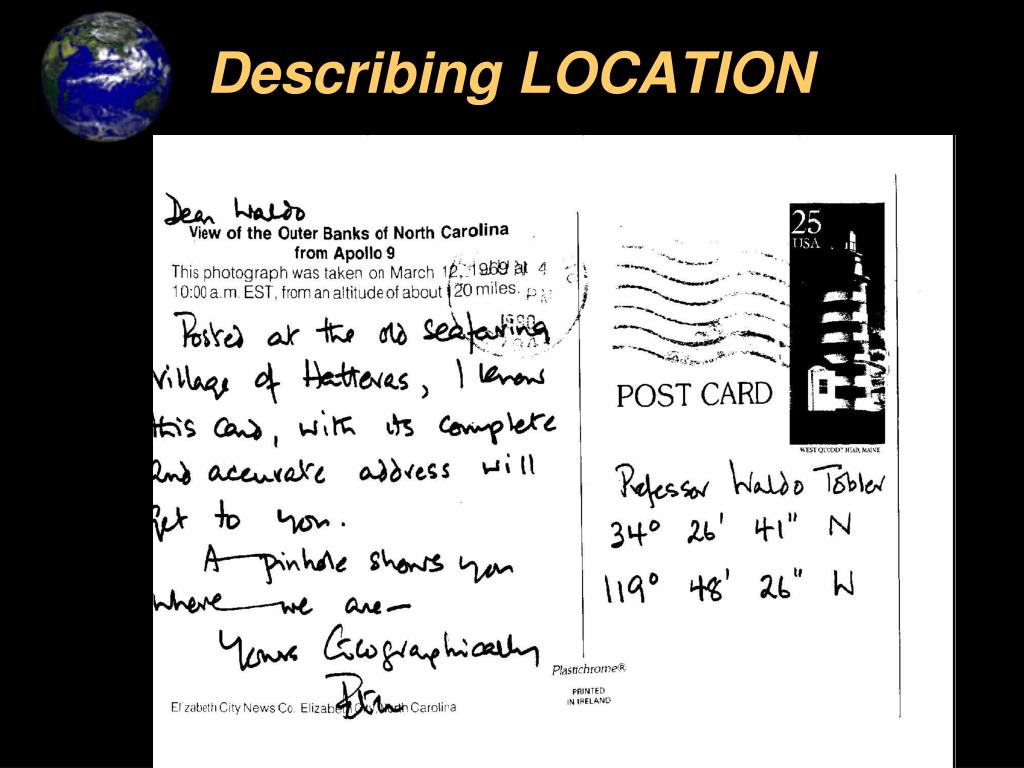 Describing LOCATION
Dear Waldo
View of the Outer Banks of North Carolina
from Apollo 9
This photograph was taken on March 12, 1969 at
10:00 a.m. EST, from an altitude of about 120 miles.
4
PM
1990
Posted at the old seafaring
village of Hatteras, I know
this card, with its complete
and accurate address will
get to you.
A pinhole shows you
where we are—
Yours Geographically
Elizabeth City News Co. Elizabeth City, North Carolina
25
USA
POST CARD
WEST QUODDY HEAD, MAINE
Professor Waldo Tobler
34° 26' 41" N
119° 48' 26" W
Plastichrome®
PRINTED
IN IRELAND